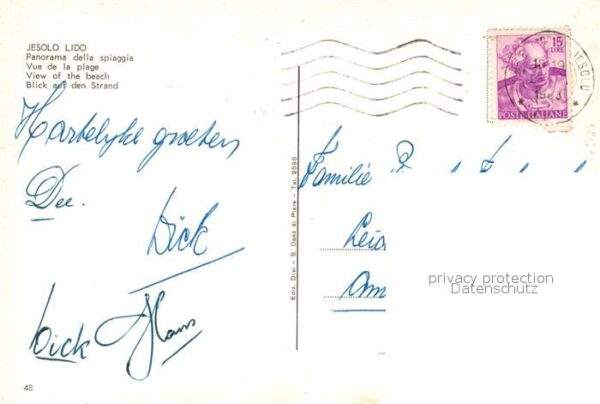 JESOLO LIDO
Panorama della spiaggia
Vue de la plage
View of the beach
Blick auf den Strand
15
LIRE
POSTE ITALIANE
JESOLO
Hartelijke groeten
Dee.
Dick
Dick Hans
Familie
privacy protection
Datenschutz
Ediz. Drei - S. Donà di Piave - Tel. 2598
48